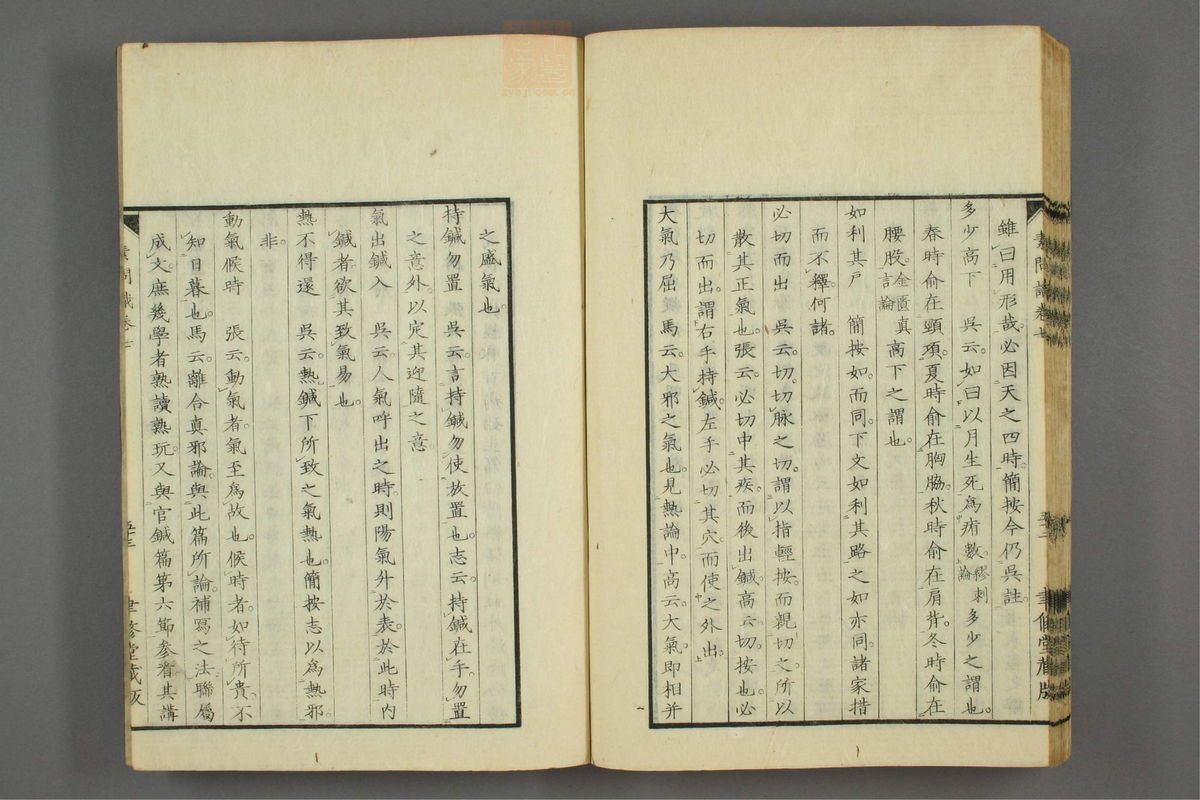 雖曰用形哉必因天之四時簡按今仍吳註
多少高下　吳云如曰以月生死爲痏數繆刺論多少之謂也
春時俞在頸項夏時俞在胸脇秋時俞在肩背冬時俞在
腰股金匱真言論高下之謂也
如利其戶　簡按如而同下文如利其路之如亦同諸家措
而不釋何諸
必切而出　吳云切切脉之切謂以指輕按而親切之所以
散其正氣也張云必切中其疾而後出鍼高云切按也必
切而出謂右手持鍼左手必切其穴而使之外出
大氣乃屈　馬云大邪之氣也見熱論中高云大氣即相并
之盛氣也
持鍼勿置　吳云言持鍼勿使放置也志云持鍼在手勿置
之意外以定其迎隨之意
氣出鍼入　吳云人氣呼出之時則陽氣外於表於此時內
鍼者欲其致氣易也
熱不得還　吳云熱鍼下所致之氣熱也簡按志以爲熱邪
非
動氣候時　張云動氣者氣至爲故也候時者如待所貴不
知日暮也馬云離合真邪論與此篇所論補寫之法聯屬
成文庶幾學者熟讀熟玩又與官鍼篇第六節參看其講
素問識卷七
聿修堂藏版